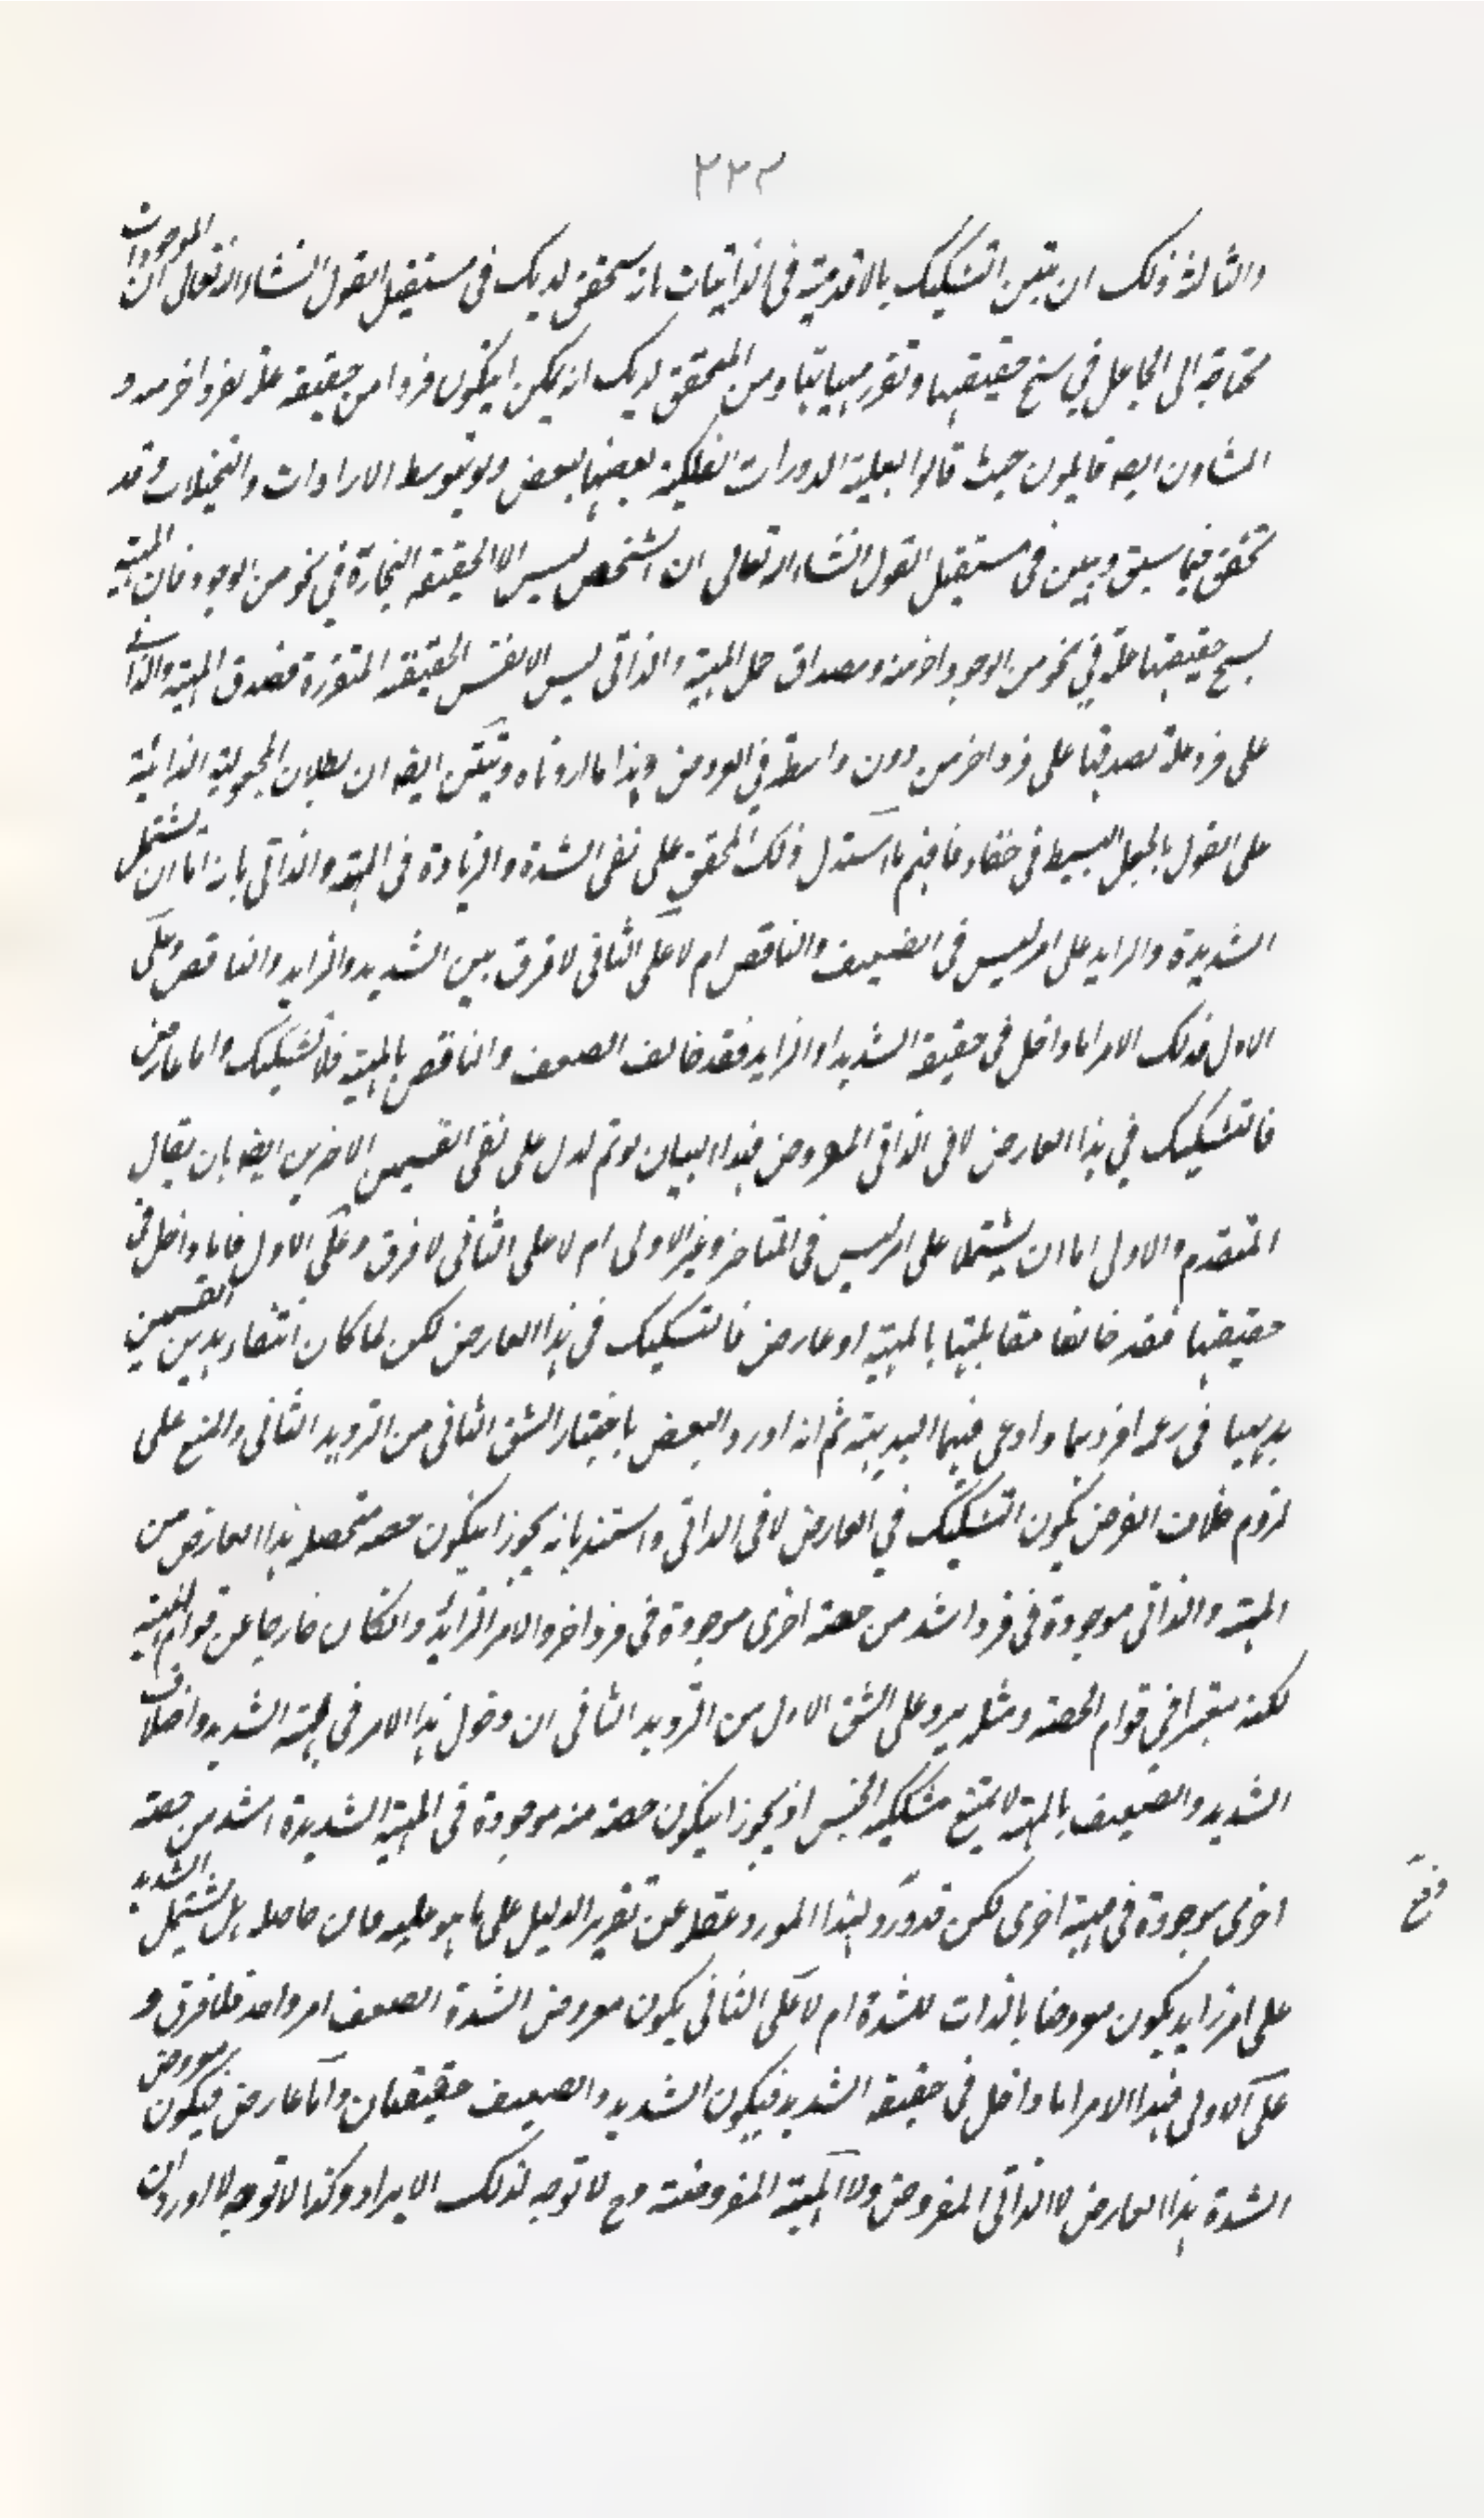 ٢٢٣
والثالثة ذلك ان تبين التشكيك بالاقدمية في الذاتيات بانه سيحقق لديك في مستقبل القول انشاء الله تعالى ان الموجودات
محتاجة الى الجاعل في سنخ حقيقتها وتقرر مهياتها ومن المتحقق لديك انه يمكن ايكون فردا من حقيقة علة لفرد اخر منه و
المشاؤن ايضه قايلون حيث قالوا بعلية الدورات الفلكية بعضها لبعض ولو بتوسط الارادات والتخيلات وقد
تحقق فيما سبق ويبين في مستقبل القول انشاء الله تعالى ان الشخص ليس الا الحقيقة المنحازة في نحو من الوجود فان المهية
بسنخ حقيقتها علة في نحو من الوجود اخر منه ومصداق حمل المهية والذاتي ليس الا نفس الحقيقة المتقررة فصدق المهية والذاتي
على فرد علة لصدقها على فرد اخر من دون واسطة في العروض وهذا ما اردناه وتيقن ايضه ان بطلان المجعولية الذاتية
على القول بالجعل البسيط في خفاء فافهم ما استدل ذلك المحقق على نفي الشدة والزيادة في المهية والذاتي بانه اما ان يشتمل
الشديدة والزايد على امر ليس في الضعيف والناقص ام لا على الثاني لا فرق بين الشديد والزايد والناقص وعلى
الاول فذلك الامر اما داخل في حقيقة الشديد او الزايد فقد خالف الضعيف والناقص بالمهية فلا تشكيك واما عارض
فالتشكيك في هذا العارض لا في الذاتي المعروض فهذا البيان لو تم لدل على نفي القسمين الاخرين ايضه بان يقال
المتقدم والاولى اما ان يشتملا على امر ليس في المتاخر وغير الاولى ام لا على الثاني لا فرق وعلى الاول فاما داخل في
حقيقتها فقد خالفا مقابلتها بالمهية او عارض فالتشكيك في هذا العارض لكن لما كان انتفاء هذين القسمين
بديهيا في زعمه افردهما وادعى فيهما البديهية ثم انه اورد البعض باختيار الشق الثاني من الترديد الثاني والمنع على
لزوم خلاف الفرض بكون التشكيك في العارض لا في الذاتي واستند بانه يجوز ايكون حصة متحصلة بهذا العارض من
المهية والذاتي موجودة في فرد اشد من حصة اخرى موجودة في فرد اخر والامر الزائد وانكان خارجا عن قوام المهية
لكنه معتبرا في قوام الحصة ومثله يرد على الشق الاول من الترديد الثاني ان دخول هذا الامر في مهية الشديد واختلاف
الشديد والضعيف بالمهية لا يمنع تشكيك الجنس اذ يجوز ايكون حصة منه موجودة في المهية الشديدة اشد من حصة
اخرى موجودة في مهية اخرى لكن قد ورد لهذا المورد غفلة عن تقرير الدليل على ما هو عليه فان حاصله هل يشتمل الشديد
على امر زايد يكون معروضا بالذات للشدة ام لا على الثاني يكون معروض الشدة الضعف امر واحد فلا فرق و
على الاولى فهذا الامر اما داخل في حقيقة الشديد فيكون الشديد والضعيف حقيقتان واما عارض فيكون معروض
الشدة هذا العارض لا الذاتي المفروض ولا المهية المفروضة مع لا توجه لذلك الايراد وكذا لا توجه لا اورد ان